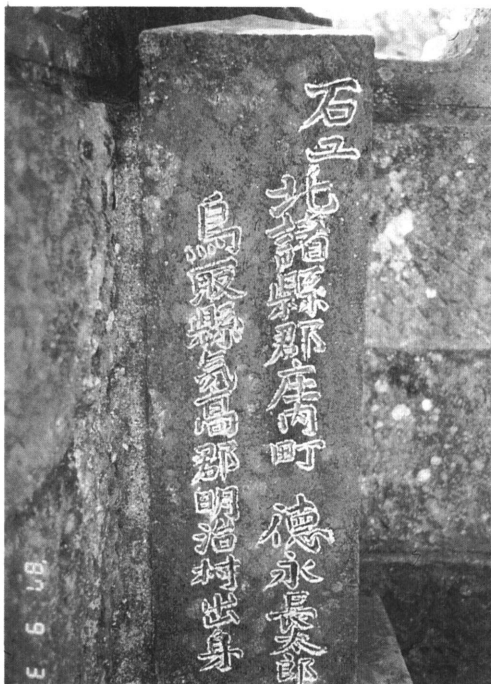 石工北諸縣郡庄内町　德永長太郎
鳥取縣気高郡明治村出身